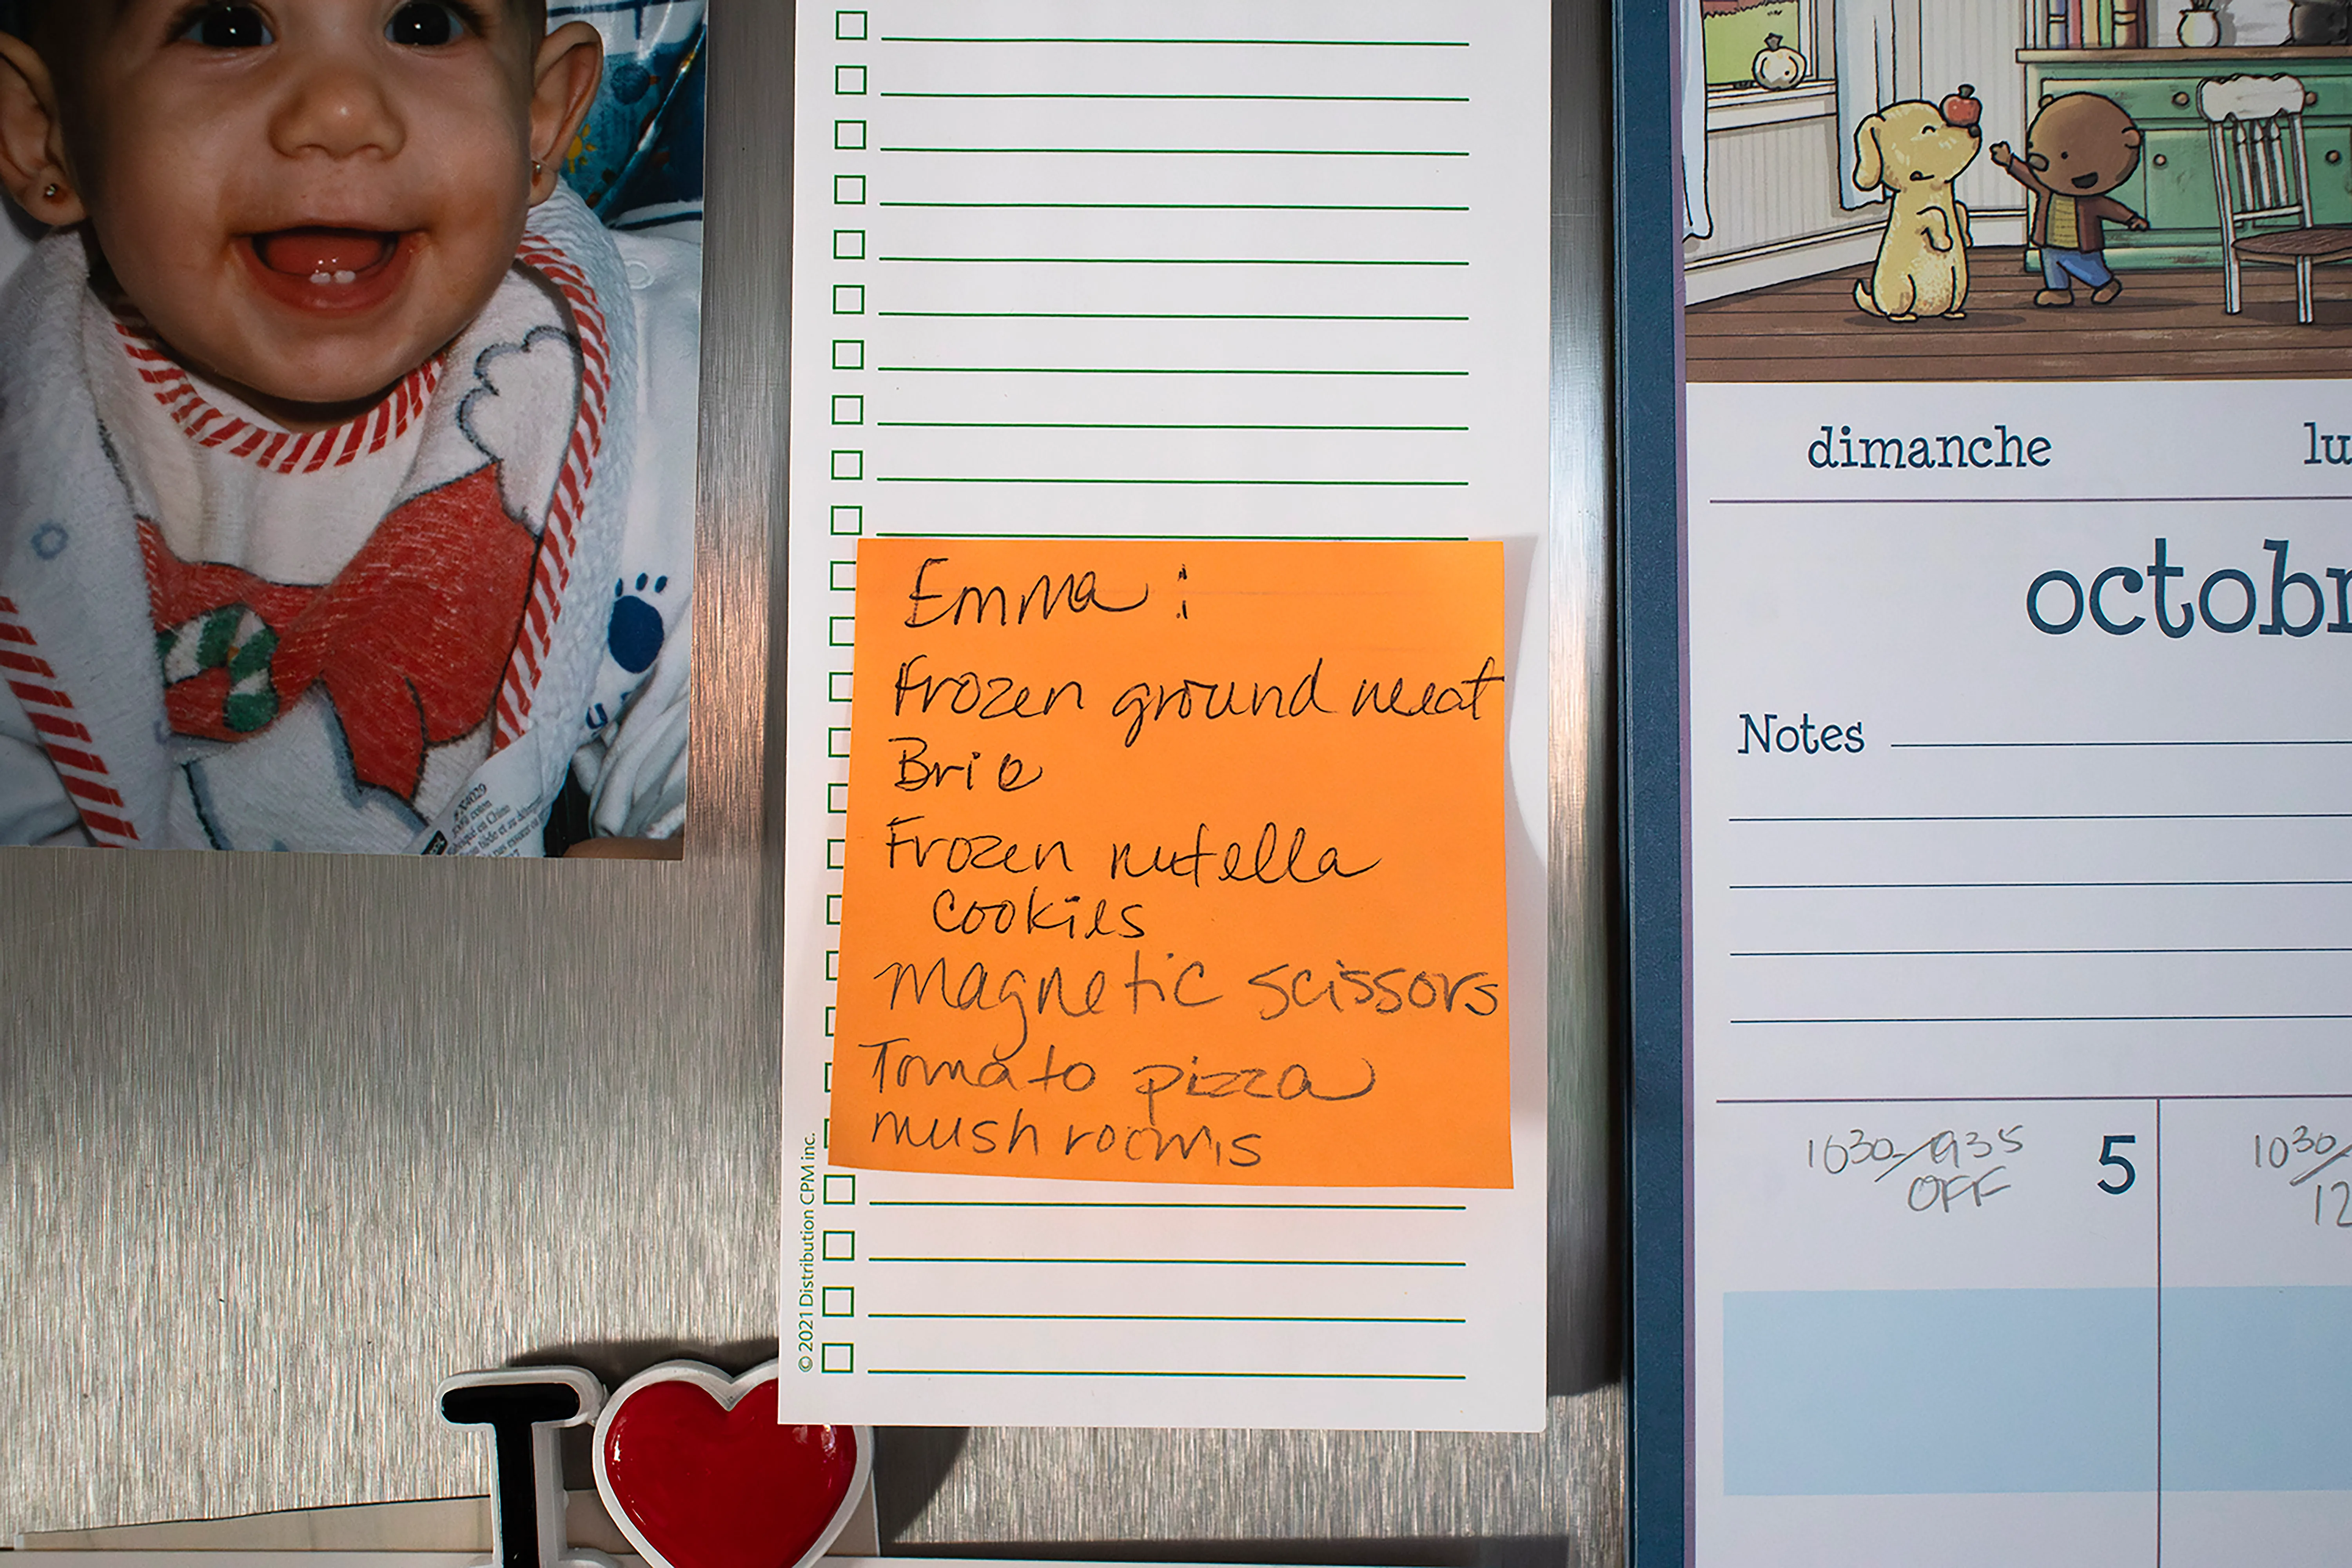 Emma:
Frozen ground meat
Brie
Frozen nutella
cookies
Magnetic scissors
Tomato pizza
mushrooms
© 2021 Distribution CPM inc.
I
dimanche
lu
octobr
Notes
1030/935
OFF
5
1030/
12